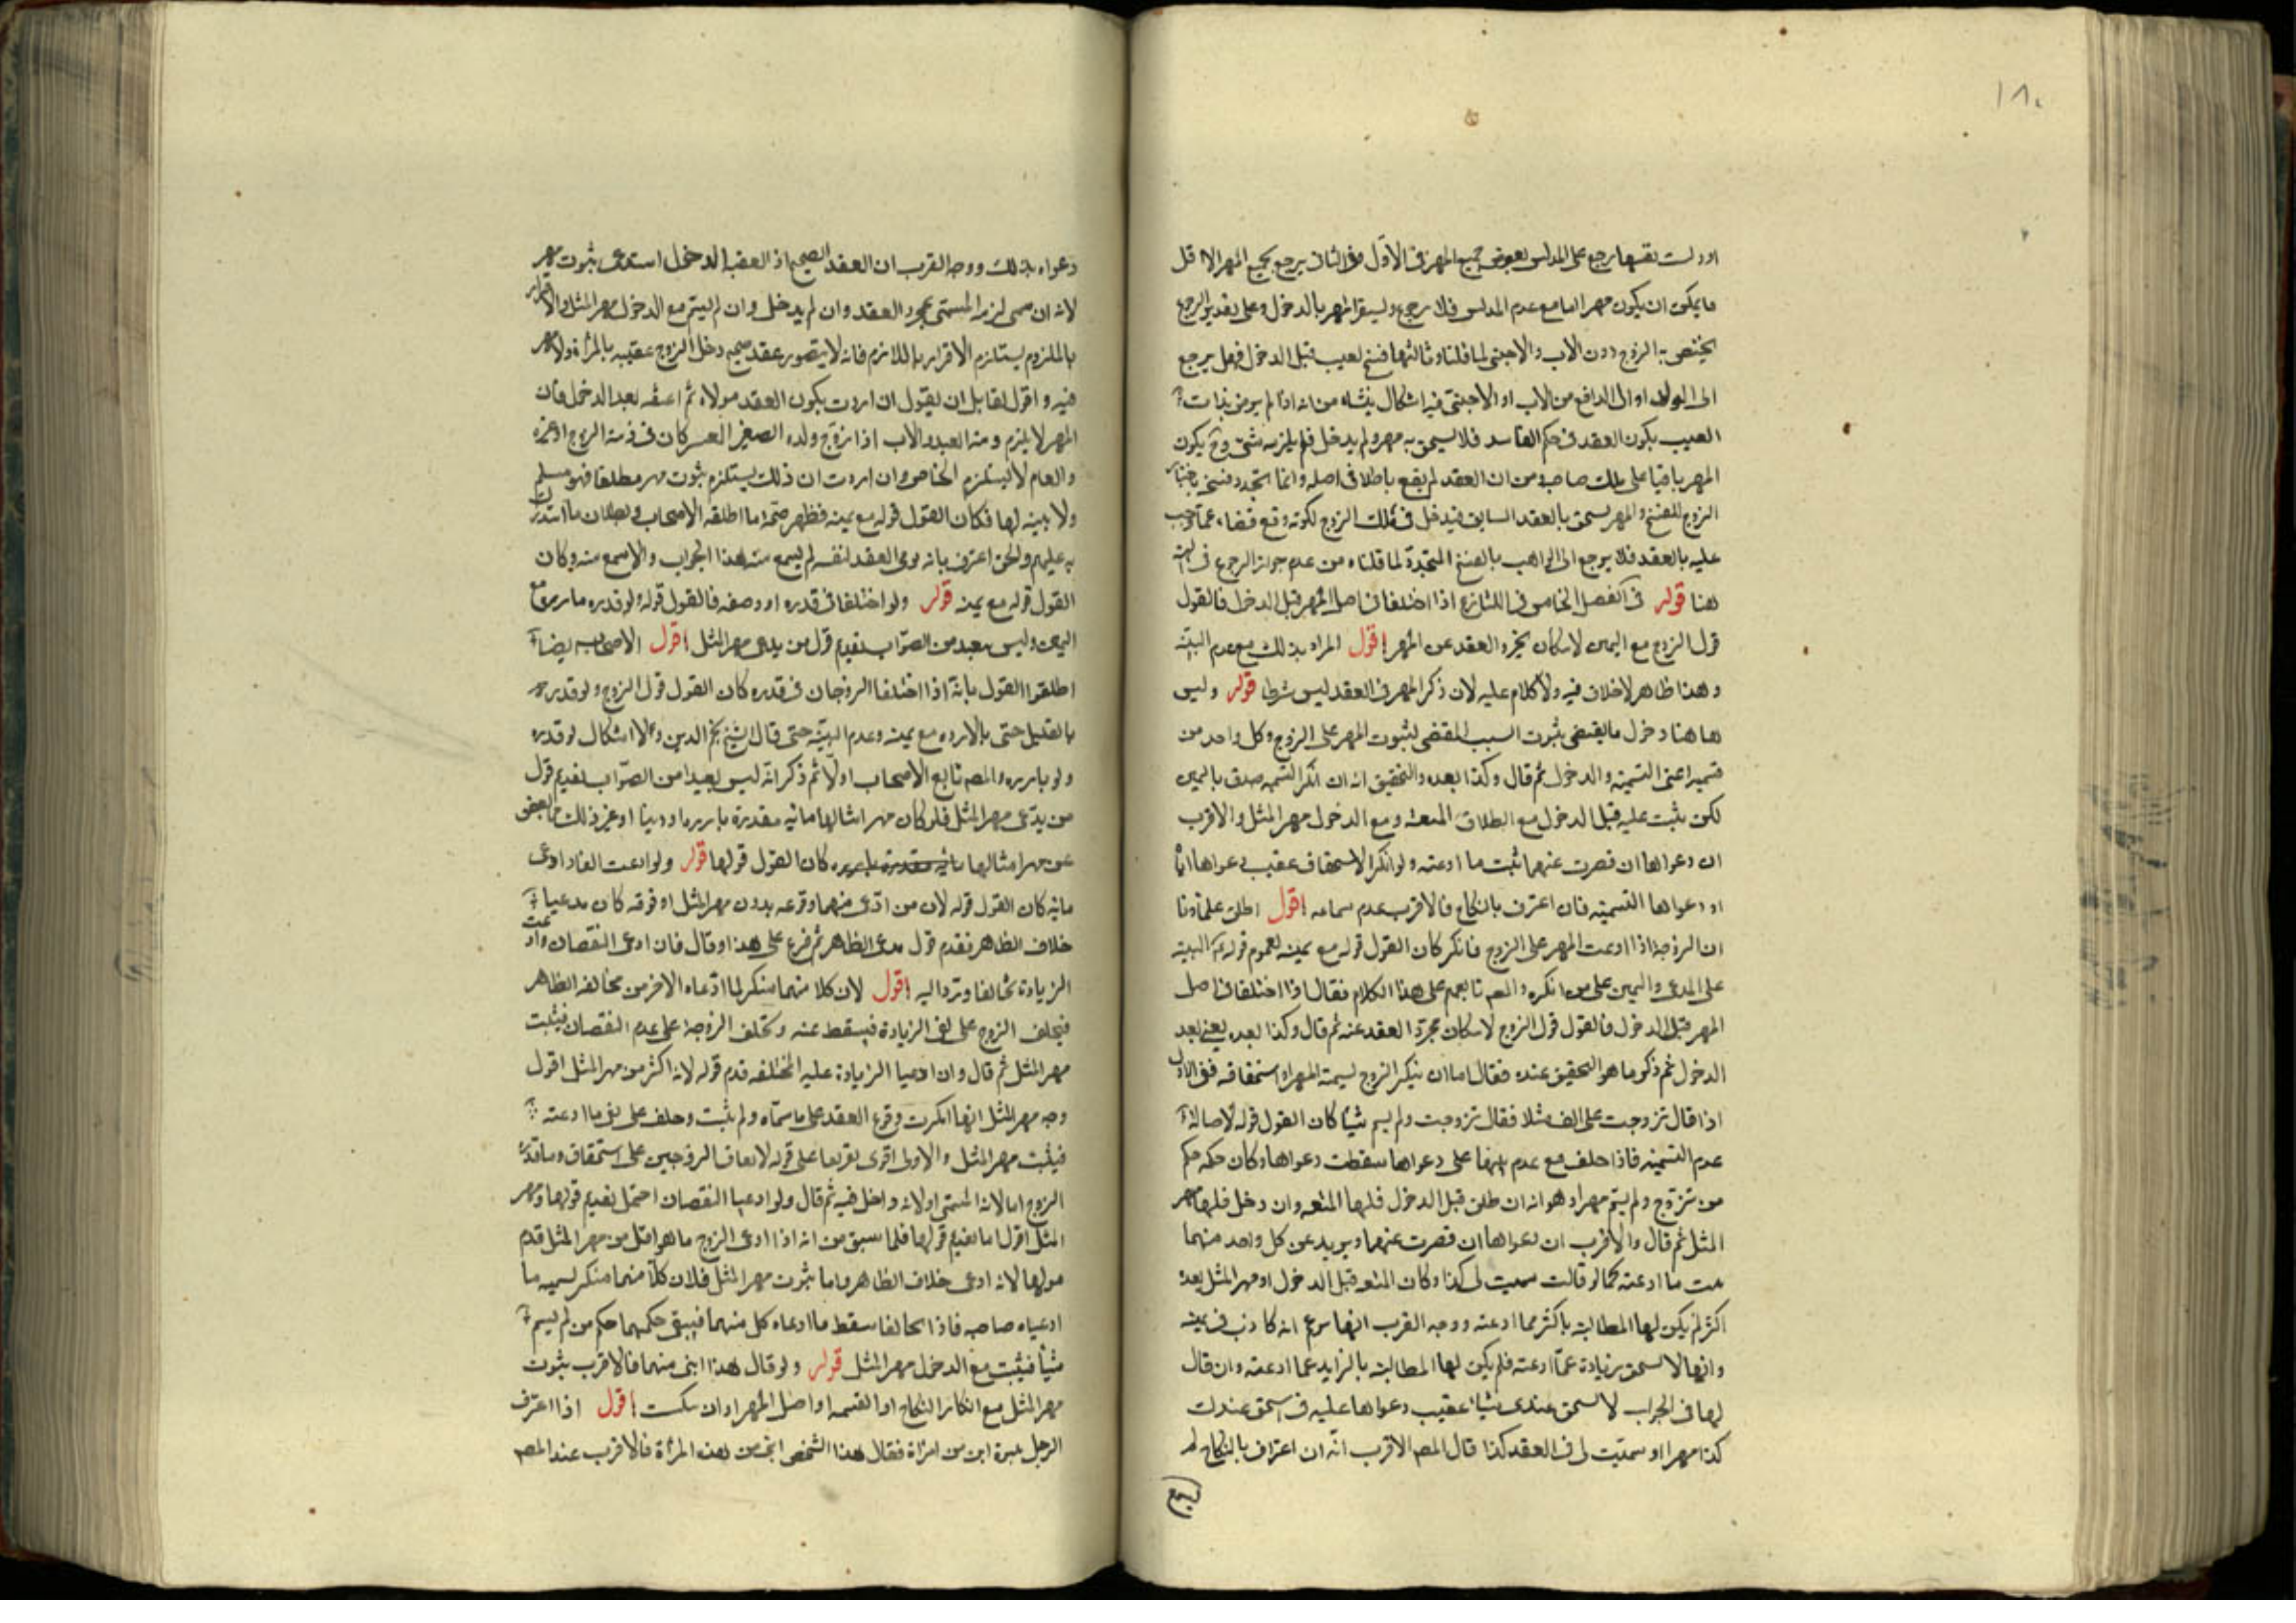 ١٨٠
او دلست نفسها رجع على المدلس بعوض جميع المهر فى الاول وفى الثانى يرجع بجميع المهر الا اقل
ما يمكن ان يكون مهرا اما مع عدم المدلس فلا رجوع وليستقر المهر بالدخول وعلى تقدير الرجوع
يختص به الزوج دون الاب والاجنبى لما قلناه وثالثها فسخ لعيب قبل الدخول فهل يرجع
الى الولد او الى الدافع من الاب او الاجنبى فيه اشكال ينشاء من انه اذا لم يرض بذات
العيب يكون العقد فى حكم الفاسد فلا يستحق به مهر ولم يدخل فلم يلزمه شئ وح يكون
المهر باقيا على ملك صاحبه ومن ان العقد لم يقع باطلا فى اصله وانما تجدد فسخه باختيار
الزوج للفسخ والمهر يستحق بالعقد السابق فيدخل فى ملك الزوج لكونه وقع قضاء عما وجب
عليه بالعقد فلا يرجع الى الواهب بالفسخ المتجدد لما قلناه من عدم جواز الرجوع فى الهبة
هنا قوله فى الفصل الخامس فى التنازع اذا اختلفا فى اصل المهر قبل الدخول فالقول
قول الزوج مع اليمين لامكان تجرد العقد عن المهر اقول المراد بذلك مع عدم البينة
وهذا ظاهر لا خلاف فيه ولا كلام عليه لان ذكر المهر فى العقد ليس شرطا قوله وليس
هاهنا دخول ما يقتضى بثبوت السبب المقتضى لثبوت المهر على الزوج وكل واحد من
قسميه اعنى التسمية والدخول ثم قال وكذا بعده والتحقيق انه ان انكر التسمية صدق باليمين
لكن يثبت عليه قبل الدخول مع الطلاق المتعة ومع الدخول مهر المثل والاقرب
ان دعواها ان قصرت عنهما ثبت ما ادعته ولو انكر الاستحقاق عقيب دعواها اياه
او دعواها التسمية فان اعترف بالنكاح فالاقرب عدم سماعه اقول اطلق علماؤنا
ان الزوجة اذا ادعت المهر على الزوج فانكر كان القول قوله مع يمينه لعموم قوله البينة
على المدعى واليمين على من انكر والمصم تابعهم على هذا الكلام فقال اذا اختلفا فى اصل
المهر قبل الدخول فالقول قول الزوج لامكان تجرد العقد عنه ثم قال وكذا بعده يعنى بعد
الدخول ثم ذكر ما هو التحقيق عنده فقال اما ان ينكر الزوج تسمية المهر او استحقاقه ففى الاول
اذا قال تزوجت على الف مثلا فقال تزوجت ولم يسم شيئا كان القول قوله لاصالة
عدم التسمية فاذا حلف مع عدم بينتها على دعواها سقطت دعواها وكان حكمه حكم
من تزوج ولم يسم مهرا وهو انه ان طلق قبل الدخول فلها المتعة وان دخل فلها مهر
المثل ثم قال والاقرب ان دعواها ان قصرت عنهما ويريد عن كل واحد منهما
ثبت ما ادعته كما لو قالت سميت لى كذا وكان المتعة قبل الدخول او مهر المثل بعده
اكثر لم يكن لها المطالبة باكثر مما ادعته ووجه القرب انها تزعم انه كاذب فى يمينه
وانها لا تستحق زيادة عما ادعته فلم يكن لها المطالبة بالزايد عما ادعته وان قال
لها فى الجواب لا تستحق عندى شيئا عقيب دعواها عليه فى استحق عندك
كذا مهرا او سميت لى فى العقد كذا قال المصم الاقرب انه ان اعترف بالنكاح لم
دعواه بذلك ووجه القرب ان العقد الصحيح اذا تعقبه الدخول استدعى ثبوت مهر
لانه ان سمى لزمه المسمى بمجرد العقد وان لم يدخل وان لم يسم مع الدخول مهر المثل والاقرار
بالملزوم يستلزم الاقرار باللازم فانه لا يتصور عقد صحيح دخل الزوج عقيبه بالمراة ولا مهر
فيه واقول لقايل ان يقول ان اردت بكون العقد مولاه ثم اعتقه بعد الدخول فان
المهر لا يلزم ومنه العبد والاب اذا زوج ولده الصغير المعسر كان فى ذمة الزوج او غيره
والعام لا يستلزم الخاص وان اردت ان ذلك يستلزم ثبوت مهر مطلقا فهو مسلم
ولا بينة لها فكان القول قوله مع يمينه فظهر صحة ما اطلقه الاصحاب وبطلان ما استدرك
به عليهم ولئن اعترف بانه نوى العقد لنفسه لم يسمع منه هذا الجواب والا سمع منه وكان
القول قوله مع يمينه قوله ولو اختلفا فى قدره او وصفه فالقول قوله ولو قدره بارزة مع
اليمين وليس ببعيد من الصواب تقديم قول من يدعى مهر المثل اقول الاصحاب ايضا
اطلقوا القول بانه اذا اختلفا الزوجان فى قدره كان القول قول الزوج ولو قدره
بالقليل حتى بالارزة مع يمينه وعدم البينة حتى قال الشيخ نجم الدين ولا اشكال لو قدره
ولو بارزة والمصم تابع الاصحاب اولا ثم ذكر انه ليس بعيدا من الصواب تقديم قول
من يدعى مهر المثل فلو كان مهر امثالها مائة مقدرة بارزة او دينار او غير ذلك مما ينقص
عن مهر امثالها مائة مقدرة بارزة كان القول قولها قوله ولو ادعت الفا وادعى
مائة كان القول قوله لان من ادعى منهما وقوعه بدون مهر المثل او فوقه كان مدعيا
خلاف الظاهر فقدم قول مدعى الظاهر ثم فرع على هذا وقال فان ادعى النقصان وادعت
الزيادة تحالفا وترد اليه اقول لان كلا منهما منكر لما ادعاه الاخر من مخالفة الظاهر
فيحلف الزوج على نفى الزيادة فيسقط عنه وتحلف الزوجة على عدم النقصان فيثبت
مهر المثل ثم قال وان ادعيا الزيادة عليه المختلفة قدم قوله لانه اكثر من مهر المثل اقول
وجه مهر المثل انها انكرت وقوع العقد على ما سماه ولم يثبت وحلف على نفى ما ادعته
فيثبت مهر المثل والاول اقوى تفريعا على قوله لاتفاق الزوجين على استحقاق ما قدره
الزوج اما لانه المسمى او لانه داخل فيه ثم قال ولو ادعيا النقصان احتمل تقديم قولها ومهر
المثل اقول اما تقديم قولها فلما سبق من انه اذا ادعى الزوج ما هو اقل من مهر المثل قدم
قولها لانه ادعى خلاف الظاهر واما ثبوت مهر المثل فلان كلا منهما منكر لتسمية ما
ادعياه صاحبه فاذا تحالفا سقط ما ادعاه كل منهما فيبقى حكمهما حكم من لم يسم
شيئا فيثبت مع الدخول مهر المثل قوله ولو قال هذا ابنى منها فالاقرب ثبوت
مهر المثل مع انكار النكاح او التسمية او اصل المهر او ان سكت اقول اذا اعترف
الرجل ببنوة ابن من امراة فقال هذا الشخص ابنى من هذه المراة فالاقرب عند المصم